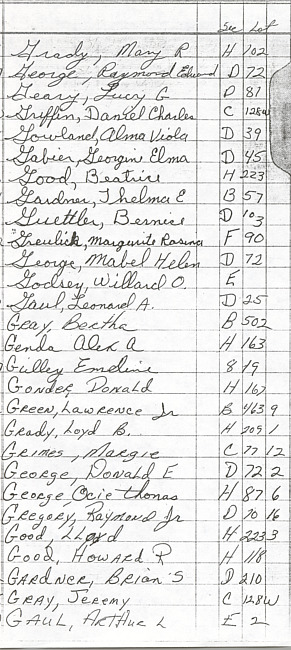 Sec Lot
Grady, Mary R H 102
George, Raymond Edward D 72
Geary, Lucy G D 81
Griffin, Daniel Charles C 128W
Gowland, Alma Viola D 39
Gabier, Georgin Elma D 45
Good, Beatrice H 223
Gardner, Thelma E B 57
Guettler, Bernice D 103
Greulich, Margurite Rosina F 90
George, Mabel Helen D 72
Godsey, Willard O. E
Gaul, Leonard A. D 25
Gray, Bertha B 502
Genda Alex A H 163
Gulley Emeline 8 19
Gonder Donald H 167
Green, Lawrence Jr B 463 9
Grady, Loyd B. H 209 1
Grimes, Margie C 77 12
George, Donald E D 72 2
George Ocie Thomas H 87 6
Gregory, Raymond Jr D 70 16
Good, Lloyd H 223 3
Good, Howard R H 118
Gardner, Brian S D 210
Gray, Jeremy C 128W
Gaul, Arthur L E 2